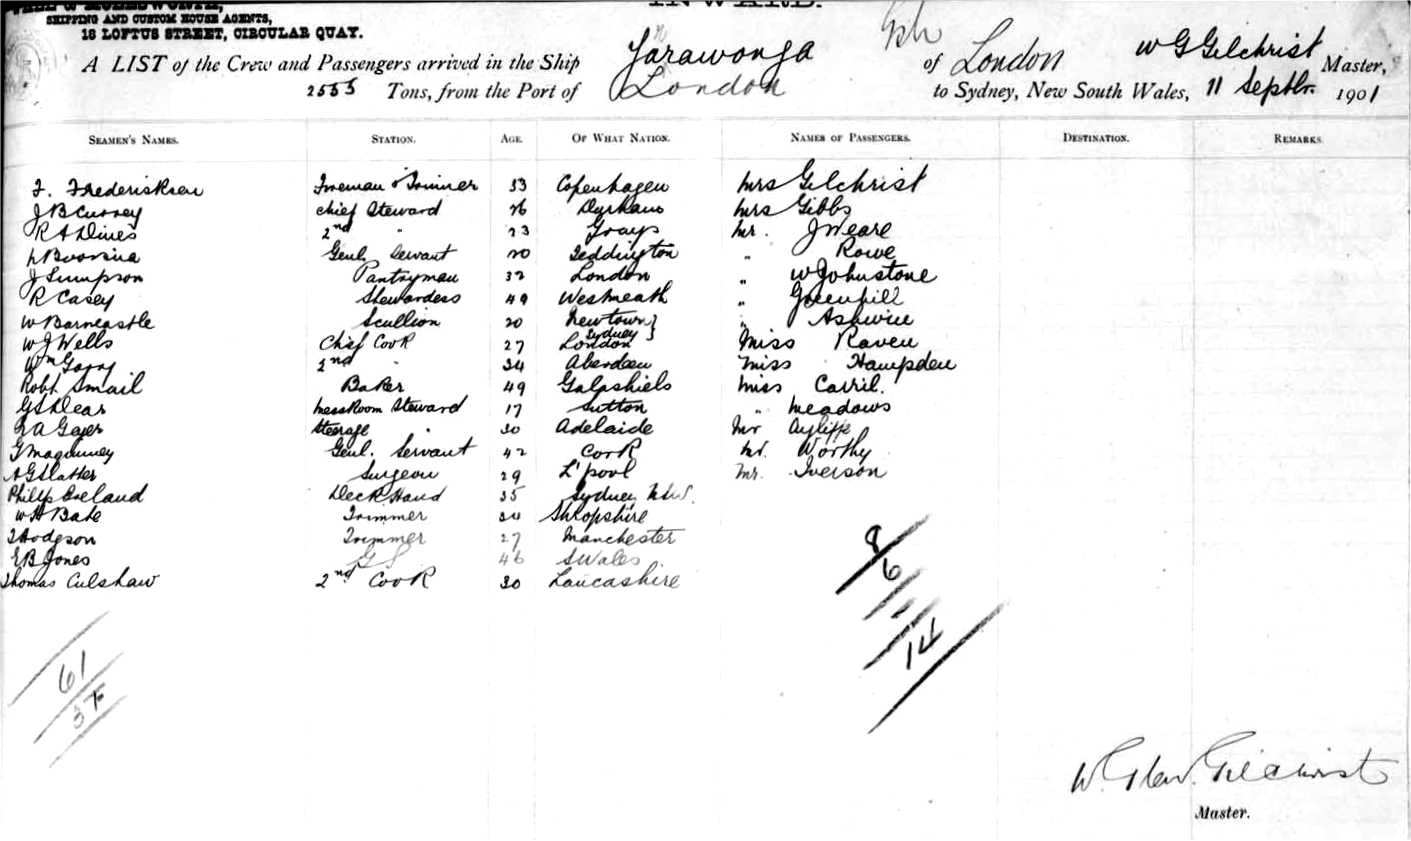 SHIPPING AND CUSTOM HOUSE AGENTS,
18 LOFTUS STREET, CIRCULAR QUAY.
INWARD.
A LIST of the Crew and Passengers arrived in the Ship Yarawonga of London W G Gilchrist Master,
2555 Tons, from the Port of London to Sydney, New South Wales, 11 Septbr. 1901
SEAMEN'S NAMES. STATION. AGE. OF WHAT NATION. NAMES OF PASSENGERS. DESTINATION. REMARKS.
F. Frederiksen Fireman & Trimmer 33 Copenhagen Mrs Gilchrist
J B Curvey Chief Steward 26 Mrs Gibbs
R A Dines 2nd " 23 Grays Mr. J Weare
Genl Servant 20 Geddington " Rowe
J Simpson Pantryman 32 London " W Johnstone
R Casey Stewardess 49 Westmeath " Greenhill
W Barncastle Scullion 20 Newtown Sydney } " Ashwin
W J Wells Chief Cook 27 London Miss Raven
Wm 2nd " 34 Aberdeen Miss Hampden
Robt Smail Baker 49 Galashiels Miss Carril.
G S Dear Messroom Steward 17 Sutton " Meadows
Steerage " 30 Adelaide Mr Ayliffe
Genl. Servant 42 Cork Mr. Worthy
A G Slatter Surgeon 29 L'pool Mr. Iverson
Philip Deck Hand 35 Sydney NSW.
W H Bate Trimmer 24 Shropshire
T Hodgson Trimmer 27 Manchester
E B Jones G S 46 S Wales
Thomas Culshaw 2nd Cook 30 Lancashire
8
6
14
61
W. Glen. Gilchrist
Master.